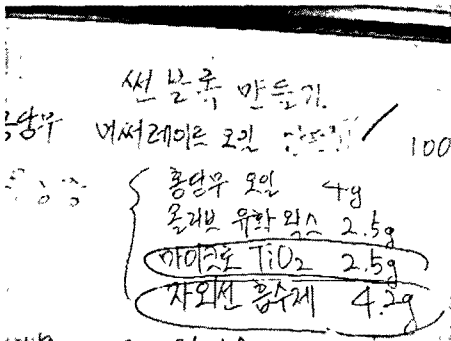 썬 블록 만들기
홍당무 머써레이트 오일 / 100
홍당무 오일 4g
올리브 유화 왁스 2.5g
마이크로 TiO2 2.5g
자외선 흡수제 4.2g